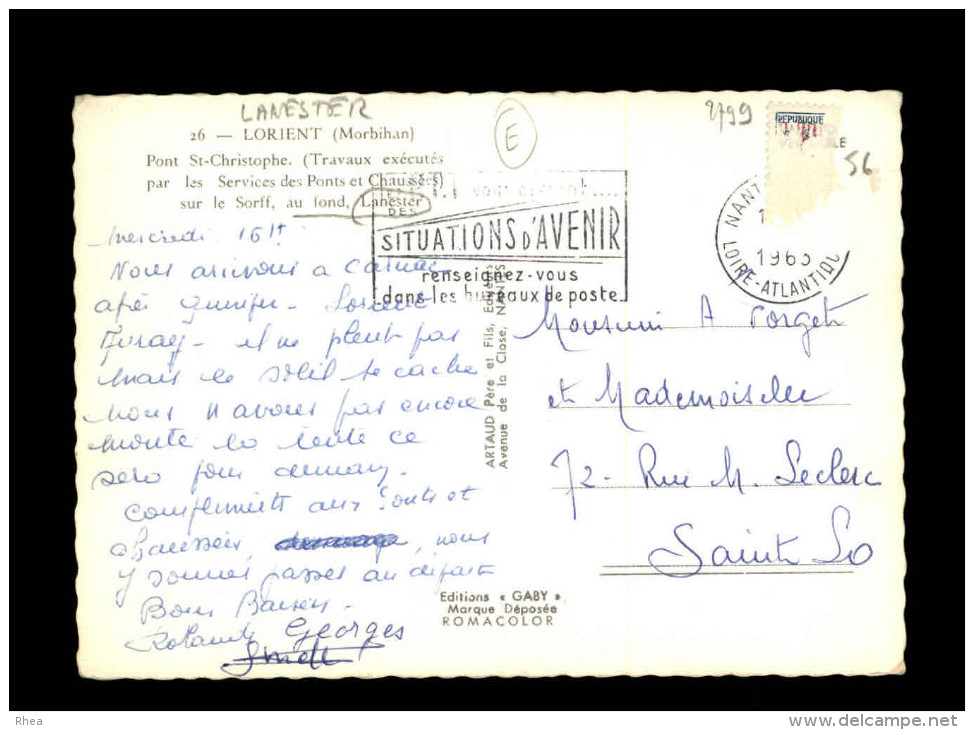 LANESTER
26 — LORIENT (Morbihan)
Pont St-Christophe. (Travaux exécutés
par les Services des Ponts et Chaussées)
sur le Sorff, au fond, Lanester
E
2799
REPUBLIQUE
56
NANT
1963
LOIRE-ATLANTIQU
DES
SITUATIONS D'AVENIR
renseignez-vous
dans les bureaux de poste
Mercredi 16 H
Nous arrivons a Carnac
après Quimper - Lorient
Auray - il ne pleut pas
mais le soleil se cache
nous n avons pas encore
monté la tente ce
sera pour
compliments aux Ponts et
chaussées, nous
y sommes passés au départ
Bons Baisers -
Rolande Georges
ARTAUD Père et Fils, Editeurs
Avenue de la Close, NANTES
Editions « GABY »
Marque Déposée
ROMACOLOR
Monsieur A Forget
et Mademoiselle
72 - Rue M. Leclerc
Saint Lo
Rhea
www.delcampe.net